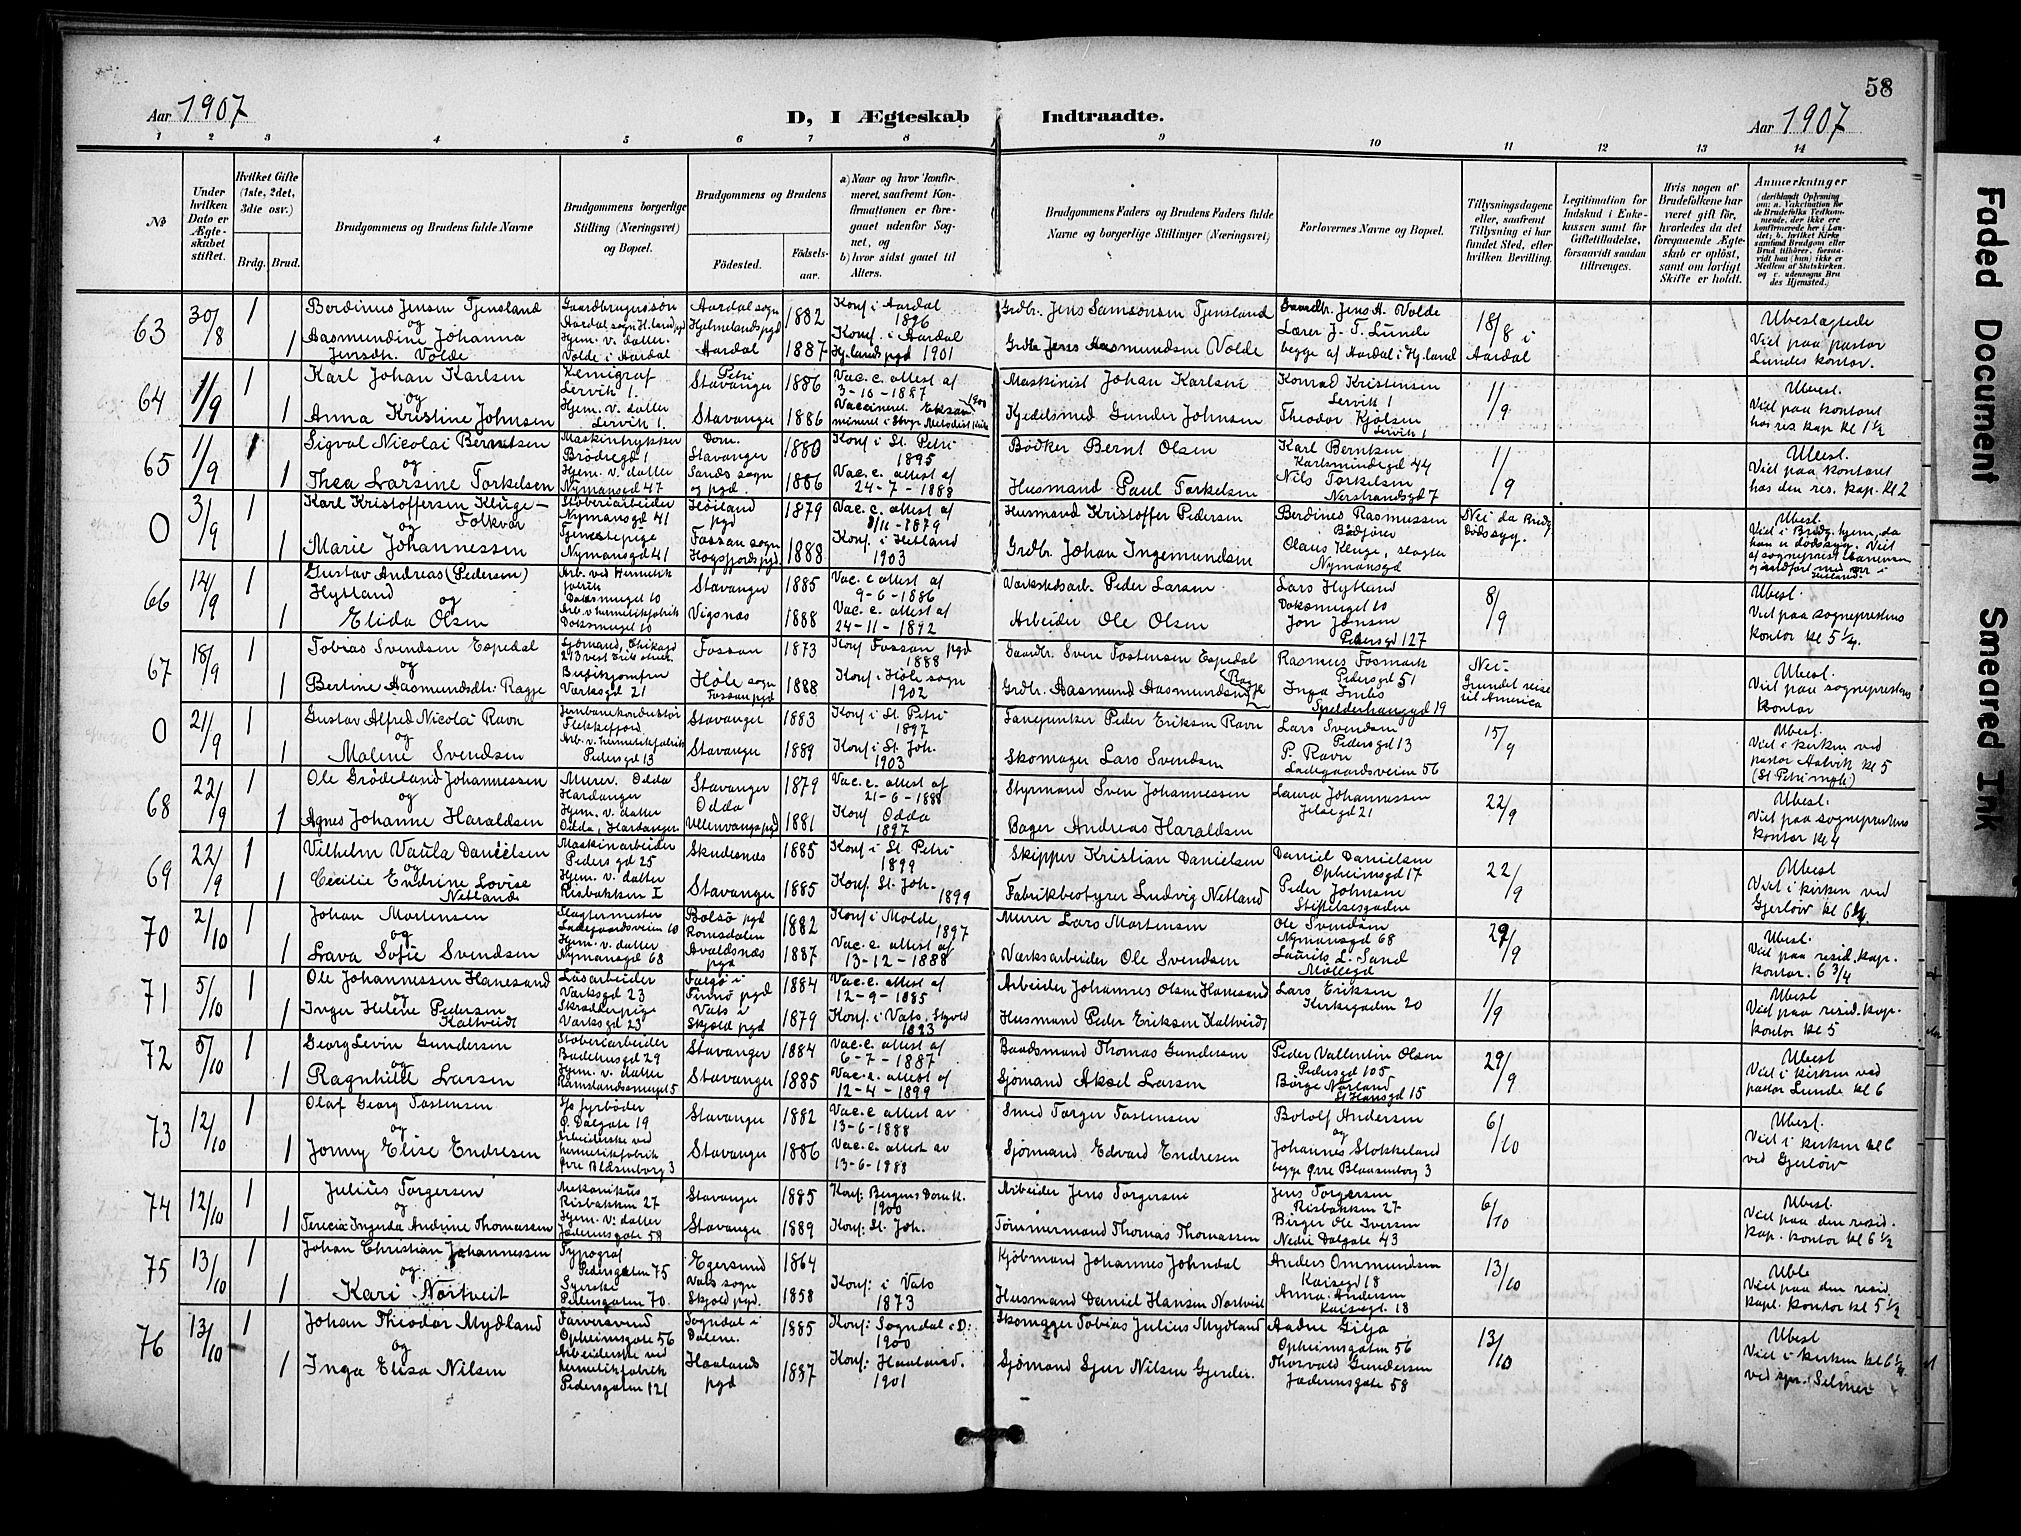 58
Aar 1907
D, I Ægteskab Indtraadte.
Aar 1907
1 2 3 4 5 6 7 8 9 10 11 12 13 14
№
Under hvilken Dato er Ægteskabet stiftet.
Hvilket Gifte (1ste, 2det, 3die osv.)
Brdg. Brud.
Brudgommens og Brudens fulde Navne
Brudgommens borgerlige Stilling (Næringsvei) og Bopæl.
Brudgommens og Brudens
Fødested.
Fødselsaar.
a) Naar og hvor konfirmeret, saafremt Konfirmationen er foregaaet udenfor Sognet, og
b) hvor sidst gaaet til Alters.
Brudgommens Faders og Brudens Faders fulde Navne og borgerlige Stillinger (Næringsvei)
Forlovernes Navne og Bopæl.
Tillysningsdagene eller, saafremt Tillysning ei har fundet Sted, efter hvilken Bevilling.
Legitimation for Indskud i Enkekassen samt for Giftetilladelse, forsaavidt saadan tiltrænges.
Hvis nogen af Brudefolkene har været gift før, hvorledes da det foregaaende Ægteskab er opløst, samt om lovligt Skifte er holdt.
Anmerkninger
63 30/8 1 Berdinus Jensen Tjensland Gaardbrugerssøn Aardal sogn Hjelmelands pgd 1882 Konf i Aardal 1896 Grdbr. Jens Samsonsen Tjensland Gaardbr. Jens A. Volde 18/8 i Aardal Ubeslægtede
og
1 Aasmundine Johanna Jensdtr. Volde Hjem. v. datter Volde i Aardal Aardal 1887 Konf. i Aardal Hj.lands pgd 1901 Grdbr Jens Aasmundsen Volde Lærer J. T. Lunde begge af Aardal i Hj.land Viel paa pastor Lundes kontor.
64 1/9 1 Karl Johan Karlsen Kemigraf Lervik 1. Petri Stavanger 1886 Vac. c. attest af 3-10-1887 Maskinist Johan Karlsen Konrad Kristensen Lervik 1 1/9 Ubesl.
og
1 Anna Kristine Johnsen Hjem. v. datter Lervik 1. Stavanger 1886 Kjedelsmed Gunder Johnsen Theodor Kjølsen Lervik 1 Viel paa kontoret hos res kap kl 1 1/2
65 1/9 1 Sigval Nicolai Berntsen Maskintrykker Brödregd 1 Dom. Stavanger 1880 Konf i St. Petri 1895 Bødker Bernt Olsen Karl Berntsen Karlsmindegd 44 1/9 Ubesl.
og
1 Thea Larsine Torkelsen Hjem. v. datter Nymansgd 47 Sands sogn og pgd. 1886 Vac. c. attest af 24-7-1888 Husmand Paul Torkelsen Nils Torkelsen Nerstrandsgd 7 Viel paa kontoret hos den res. kap. kl 2
0 3/9 1 Karl Kristoffersen Kluge-Folkvor Støberiarbeider Nymansgd 41 Høiland pgd 1879 Vac. c. attest af 8/11-1879 Husmand Kristoffer Pedersen Berdines Rasmussen Bødfører Nei da Brudg. dødssyg. Ubesl.
og
1 Marie Johannessen Tjenestepige Nymansgd 41 Fossan sogn Høgsfjords pgd 1888 Konf. i Hetland 1903 Grdbr. Johan Ingemundsen Olaus Kluge, slagter Nymansgd Viel i Brudg. hjem, da han er dødssyg. Viel af sogneprest
66 12/9 1 Gustav Andreas (Pedersen) Hytland Arb. ved Hermetikfabrik Doksmuget 10 Stavanger 1885 Vac. c attest af 9-6-1886 Værkstedsarb. Peder Larsen Lars Hytland Doksmuget 10 8/9 Ubesl.
og
1 Elida Olsen Arb. v. hermetikfabrik Doksmuget 10 Vigsnæs 1888 Vac. c. attest af 24-11-1892 Arbeider Ole Olsen Jon Jonsen Pedersgd 127 Viel paa sogneprestens kontor kl 5 1/4.
67 18/9 1 Tobias Svendsen Espedal Sjømand, Chikago 213 vest Erie street. Fossan 1873 Konf Fossan pgd 1888 Gaardbr. Sven Tostensen Espedal Rasmus Fosmark Pedersgd 51 Nei- Grundet reise til America Ubesl.
og
1 Bertine Aasmundsdtr. Ragje Buffetjomfru Verksgd 21 Høle sogn Fossan pgd 1888 Konf. i Høle sogn 1902 Grdbr. Aasmund Aasmundsen Ragje Inga Imbs Spilderhauggd 19 Viel paa sogneprestens kontor
0 21/9 1 Gustav Alfred Nicolai Ravn Jernbanekonduktør Flekkefjord Stavanger 1883 Konf i St. Petri 1897 Peder Eriksen Ravn Lars Svendsen Pedersgd 13 15/9 Ubesl.
og
1 Malene Svendsen Arb. v. hermetikfabrik Pedersgd 13 Stavanger 1889 Konf i St. Joh. 1903 Skomager Lars Svendsen P. Ravn Ladegaardsveien 56 Viel i kirken ved pastor Aalvik kl 5 (St Petri mgh)
68 22/9 1 Ole Grødeland Johannessen Murer. Odda Hardanger Stavanger 1879 Vac. c. attest af 21-6-1888 Styrmand Sven Johannessen Laura Johannessen Jelsegd 21 22/9 Ubesl.
og
1 Agnes Johanne Haraldsen Hjem. v. datter Odda, Hardanger Odda Ullensvangs pgd 1881 Konf Odda 1897 Bager Andreas Haraldsen Viel paa sogneprestens kontor kl 4
69 22/9 1 Vilhelm Vaula Danielsen Maskinarbeider Pedersgd 25 Skudesnæs 1885 Konf i St Petri 1899 Skipper Kristian Danielsen Daniel Danielsen Opheimsgd 17 22/9 Ubesl
og
1 Cecilie Endrine Lovise Netland Hjem. v. datter Risbakken I Stavanger 1885 Konf. St. Joh. 1899 Fabrikbestyrer Ludvig Netland Peder Johnsen Stiftelsesgaden Viel i kirken ved Gjerløiv kl 6 1/2.
70 2/10 1 Johan Mortensen Slagtermester Ladegaardsveien 10 Bolsø pgd Romsdalen 1882 Konf i Molde 1897 Murer Lars Mortensen Ole Svendsen Nymansgd 68 29/9 Ubesl.
og
1 Lava Sofie Svendsen Hjem. v. datter Nymansgd 68 Avaldsnæs pgd 1887 Vac. c. attest af 13-12-1888 Værksarbeider Ole Svendsen Laurits L. Sand Møllegd Viel paa resid. kap. kontor. 6 3/4
71 5/10 1 Ole Johannessen Hanesand Løsarbeider Verksgd 23 Finnø pgd 1884 Vac. c. attest af 12-9-1885 Arbeider Johannes Olsen Hanesand Lars Eriksen Kirkegaden 20 1/9 Ubesl
og
1 Inger Helene Pedersen Kaltveidt Skrædderpige Verksgd 23 Vats i Skjold pgd 1879 Konf. i Vats, Skjold 1893 Husmand Peder Eriksen Kaltveidt Viel paa resid. kap. kontor kl 5
72 5/10 1 Georg Levin Gundersen Støberiarbeider Badehusgd 29 Stavanger 1884 Vac. c. attest af 6-7-1887 Baadsmand Thomas Gundersen Peder Vallentin Olsen Pedersgd 105 29/9 Ubesl
og
1 Ragnhild Larsen Hjem. v. datter Ramslandsmuget 5 Stavanger 1885 Vac. c. attest af 12-4-1899 Sjømand Aksel Larsen Børge Nørland St Hansgd 15 Viel i kirken ved pastor Lunde kl 6
73 12/10 1 Olaf Georg Tostensen S/s fyrbøder Ø. Dalgate 19 Stavanger 1882 Vac. c. attest av 13-6-1888 Smed Torger Tostensen Botolf Andersen 6/10 Ubesl.
og
1 Jonny Elise Endresen Arbeiderske ved hermetikfabrik Øvre Blåsenborg 3 Stavanger 1886 Vac. c. attest av 13-6-1988 Sjømand Edvard Endresen og Johannes Stokkeland begge Øvre Blaasenborg 3 Viel i kirken kl 6 ved Gjerløiv
74 12/10 1 Julius Torgersen Mekanikus Risbakken 27 Stavanger 1885 Konf: Bergens Domk. 1900 Arbeider Jens Torgersen Jens Torgersen Risbakken 27 6/10 Ubesl.
og
1 Terecia Ingerda Andrine Thomassen Hjem. v. datter Jæderensgate 58 Stavanger 1889 Konf: St. Joh. Tømmermand Thomas Thomassen Birger Ole Iversen Nedre Dalgate 43 Viel paa den resid. kap. kontor kl 6 1/2
75 13/10 1 Johan Christian Johannessen Typograf Pedersgaten 75 Egersund 1864 Kjøbmand Johannes Johndal Anders Ommundsen Kaisegd 18 13/10 Uble
og
1 Kari Nortveit Syerske Pedersgaten 70. Vats sogn Skjold pgd. 1858 Konf: i Vats 1873 Husmand Daniel Hansen Nortveit Anna Andersen Kaisegd. 18 Viel paa den resid. kapl. kontor kl 5 1/2
76 13/10 1 Johan Theodor Mydland Farversvend Opheimsgate 56 Sogndal i Dalene. 1885 Konf: Sogndal i D: 1900 Skomager Tobias Julius Mydland Aadne Gilja Opheimsgaten 56 13/10 Ubesl
og
1 Inga Elisa Nilsen Arbeiderske ved hermetikfabrik Pedersgaten 121 Haalands pgd 1887 Konf: Haaland. 1901 Sjømand Sjur Nilsen Gjerde. Thorvald Gundersen Jæderensgate 58 Viel i kirken kl 6 1/4. ved spr. Selmer
Faded Document
Smeared Ink